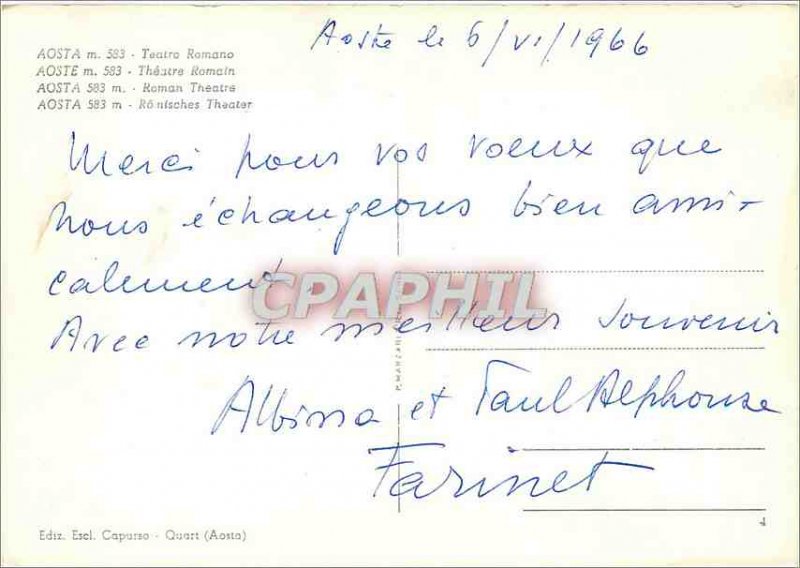 Aoste le 6/VI/1966
AOSTA m. 583 - Teatro Romano
AOSTE m. 583 - Théatre Romain
AOSTA 583 m. - Roman Theatre
AOSTA 583 m - Rönisches Theater
Merci pour vos voeux que
nous échangeons bien ami-
calement.
Avec notre meilleur souvenir
Albina et Paul Alphonse
Farinet
CPAPHIL
4
Ediz. Escl. Capurso - Quart (Aosta)